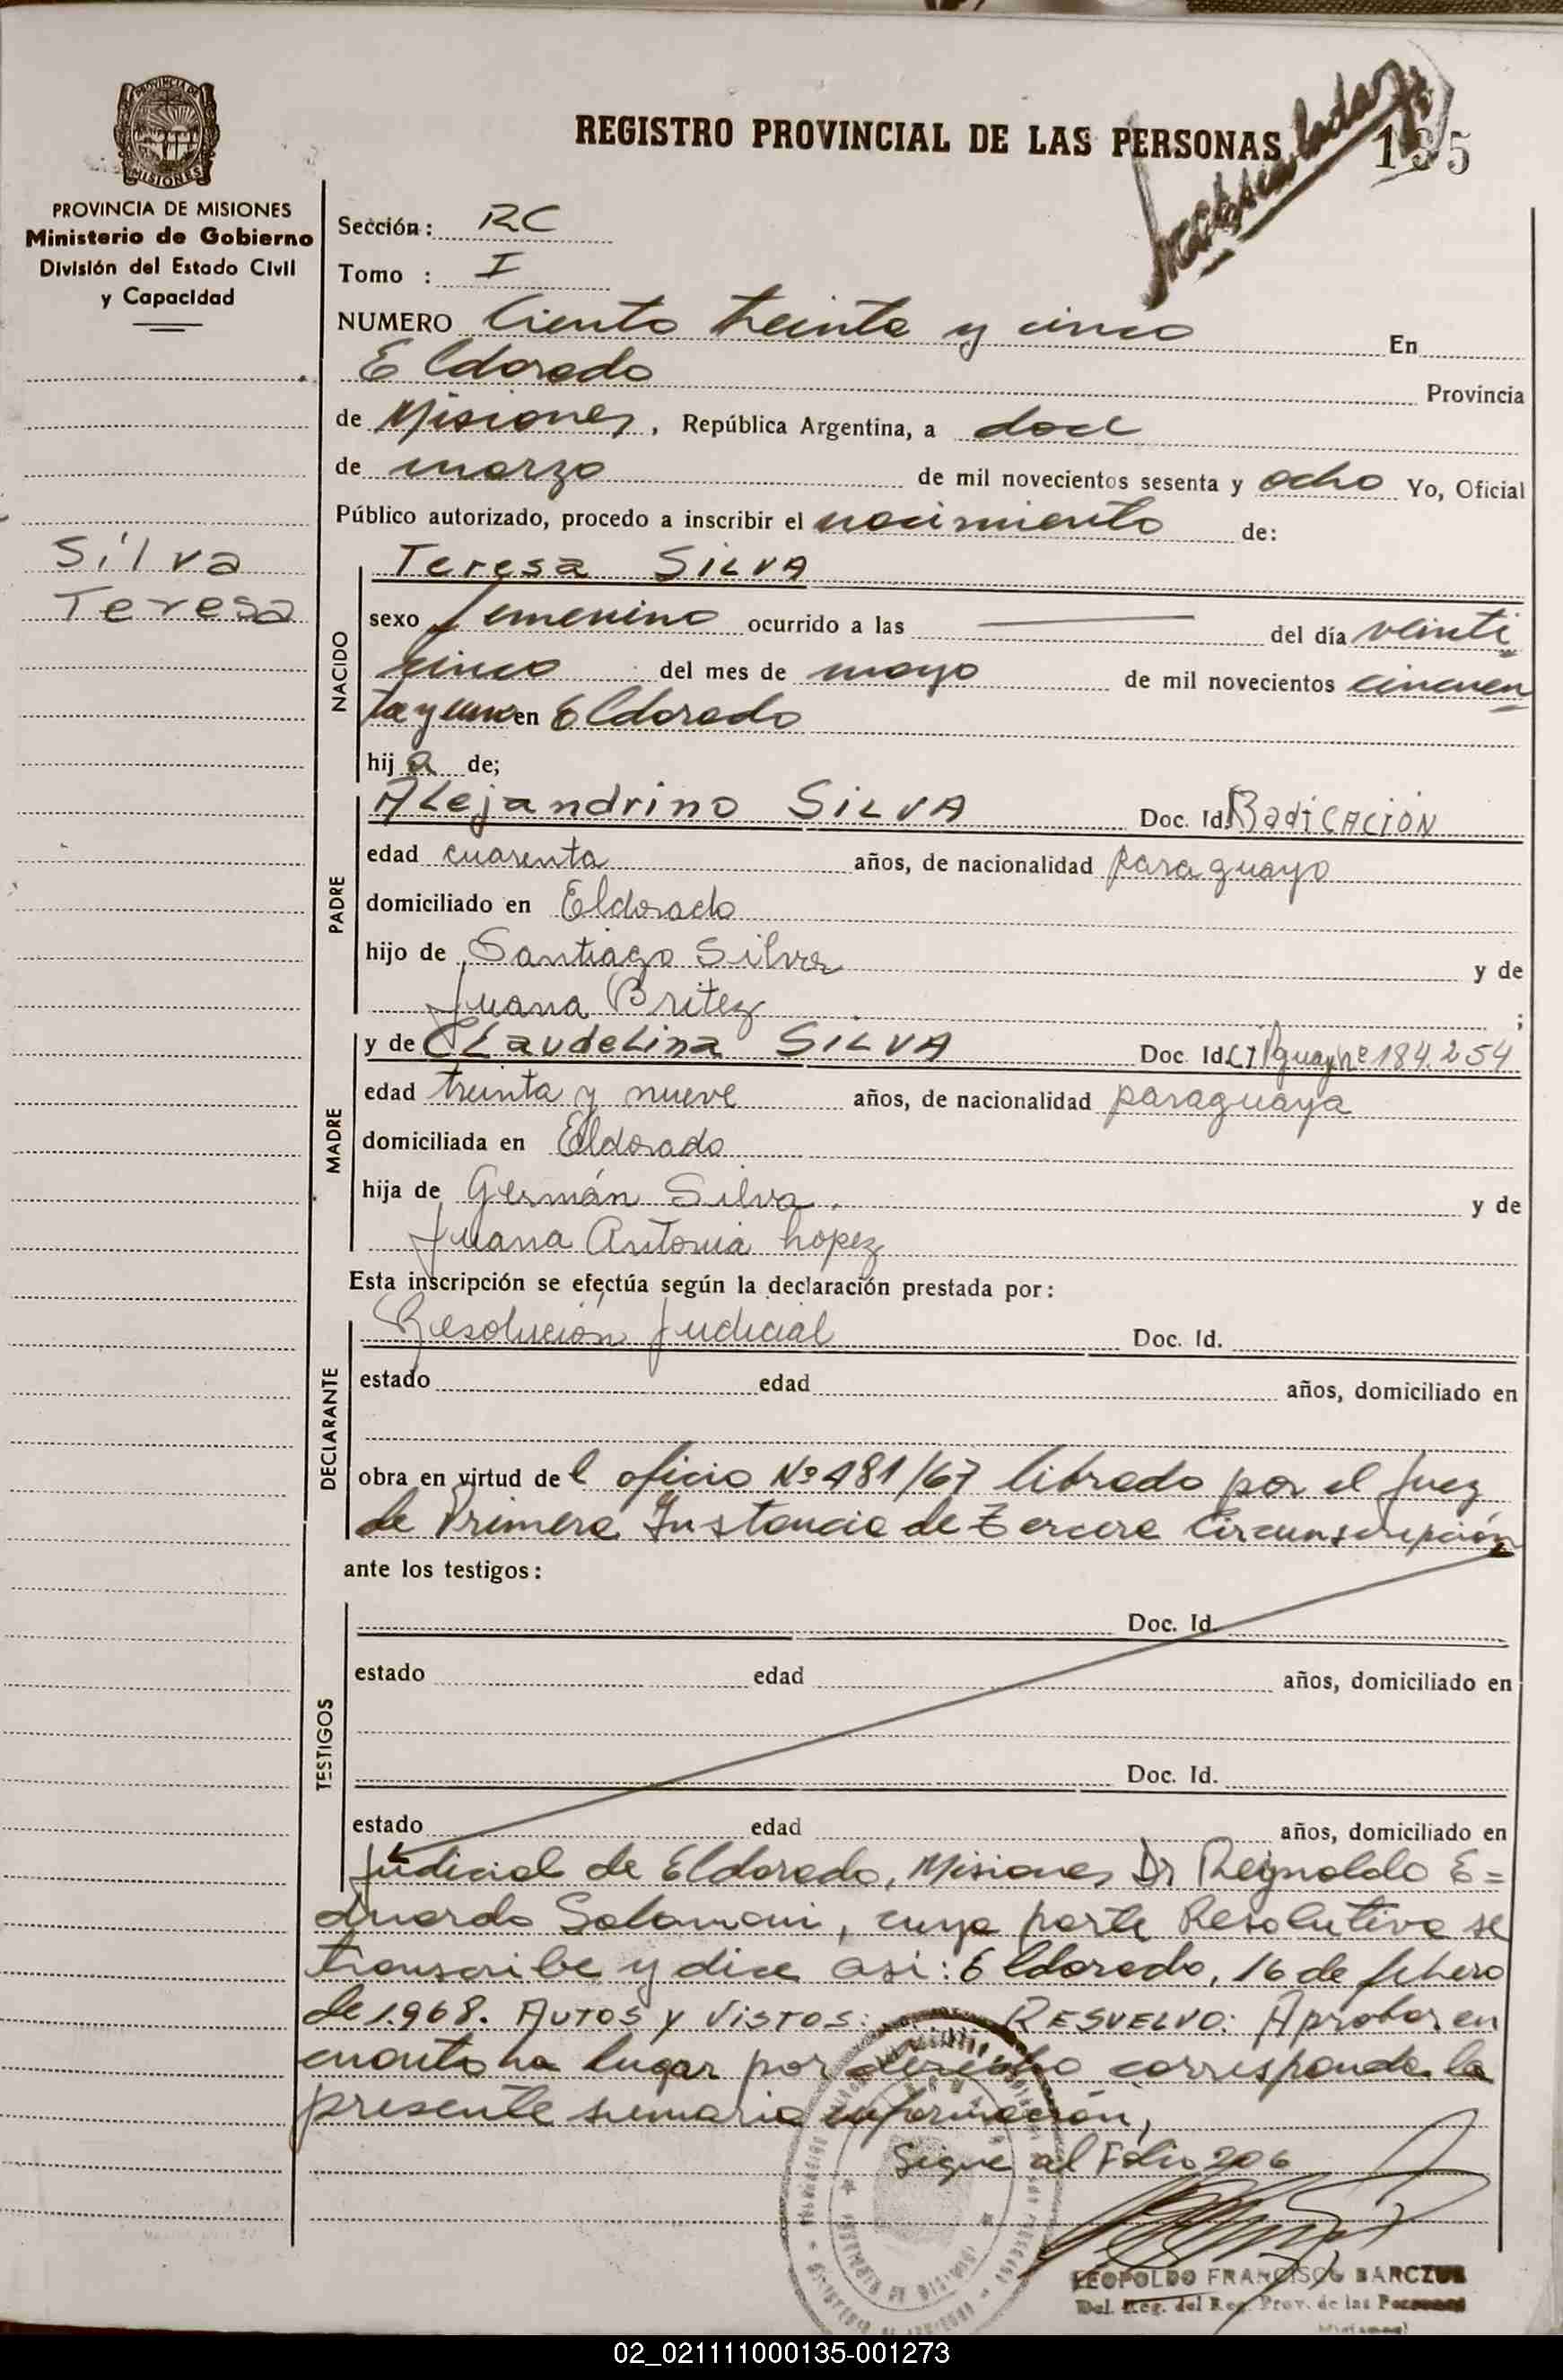 PROVINCIA DE
MISIONES
PROVINCIA DE MISIONES
Ministerio de Gobierno
División del Estado Civil
y Capacidad
REGISTRO PROVINCIAL DE LAS PERSONAS
Sección: RC
Tomo : I
NUMERO Ciento treinta y cinco En
Eldorado Provincia
de Misiones, República Argentina, a doce
de marzo de mil novecientos sesenta y ocho Yo, Oficial
Público autorizado, procedo a inscribir el nacimiento de:
Silva
Teresa
NACIDO
Teresa SILVA
sexo femenino ocurrido a las — del día veinti
cinco del mes de mayo de mil novecientos cincuen
ta y uno en Eldorado
hij a de;
PADRE
Alejandrino SILVA Doc. Id. Radicación
edad cuarenta años, de nacionalidad paraguayo
domiciliado en Eldorado
hijo de Santiago Silva y de
Juana Britez ;
MADRE
y de Claudelina SILVA Doc. Id. nº 184.254
edad treinta y nueve años, de nacionalidad paraguaya
domiciliada en Eldorado
hija de Germán Silva y de
Juana Antonia Lopez
Esta inscripción se efectúa según la declaración prestada por:
DECLARANTE
Resolución Judicial Doc. Id.
estado edad años, domiciliado en
obra en virtud de l oficio Nº 481/67 librado por el Juez
de Primera Instancia de Tercera Circunscripción
ante los testigos:
TESTIGOS
Doc. Id.
estado edad años, domiciliado en
Doc. Id.
estado edad años, domiciliado en
Judicial de Eldorado, Misiones Dr Reynaldo E=
duardo Solomoni, cuya parte Resolutiva se
transcribe y dice asi: Eldorado, 16 de febrero
de 1.968. AUTOS y VISTOS: RESUELVO: Aprobar en
cuanto ha lugar por derecho corresponda la
presente sumaria información,
Sigue al Folio 206
LEOPOLDO FRANCISCO BARCZUK
Del. Reg. del Reg. Prov. de las Personas
02_021111000135-001273